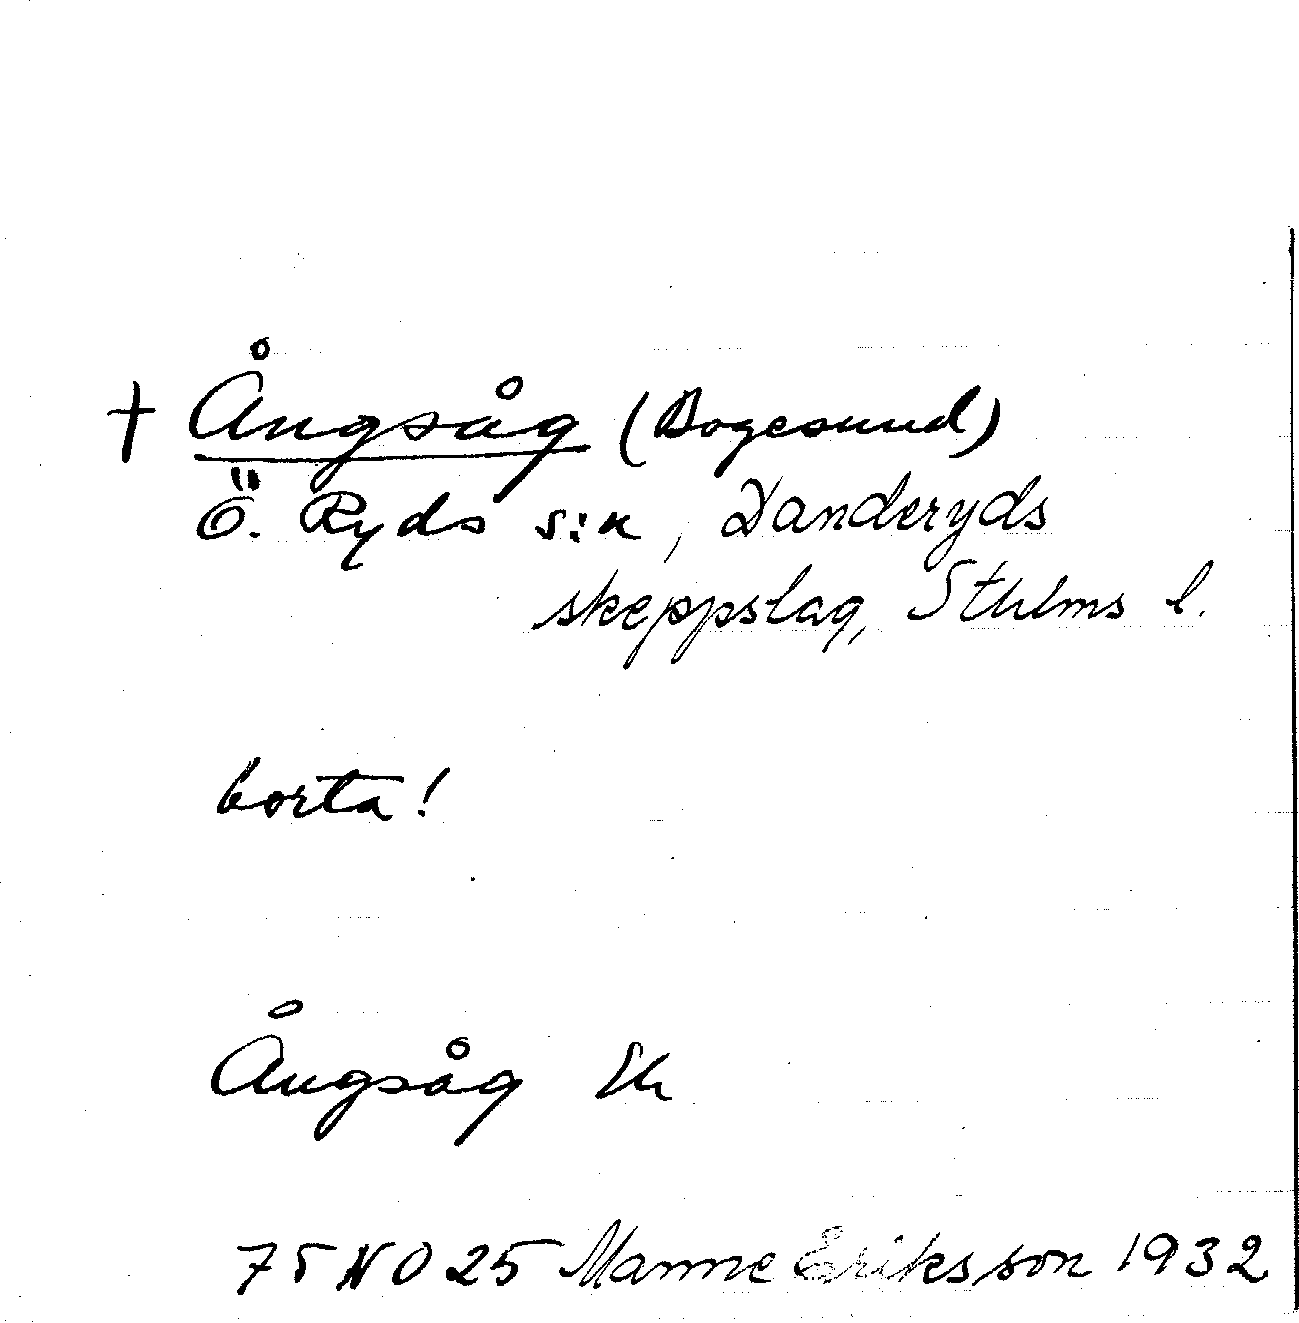 † Ångsåg (Bogesund)
Ö. Ryds s:n, Danderyds
skeppslag, Sthlms l.
borta!
Ångsåg Ek
75 NO 25 Manne Eriksson 1932